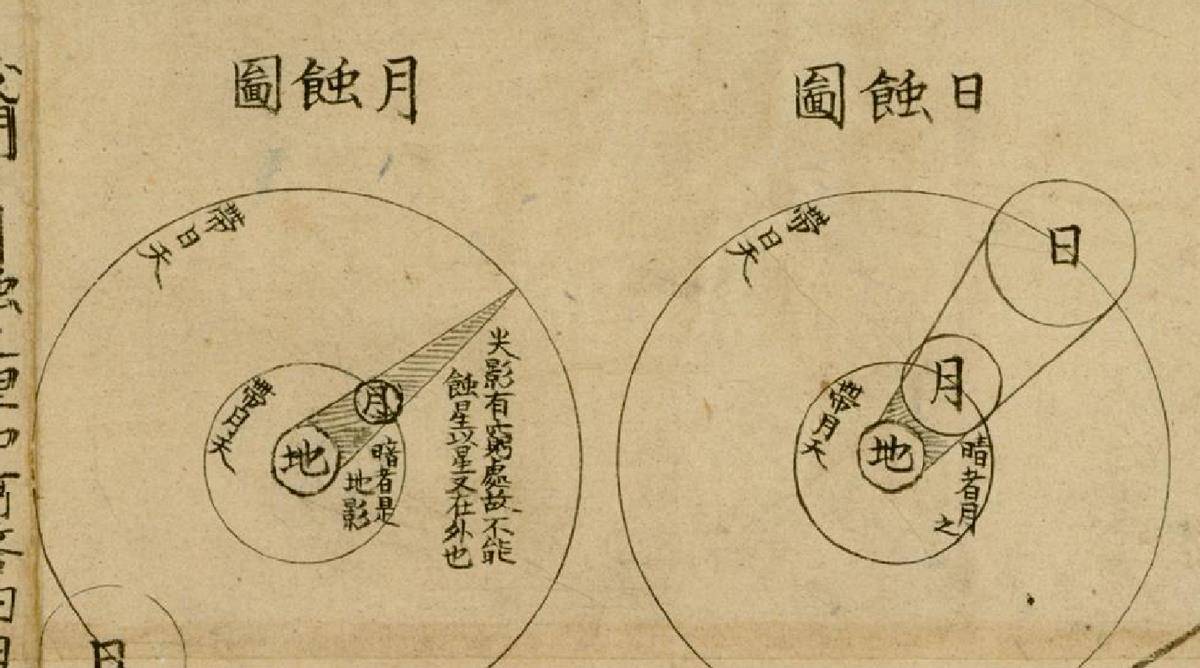 日蝕圖
帶日天
日
月
帶月天
地
暗者月
之
月蝕圖
帶日天
尖影有窮處故不能
蝕星以星又在外也
月
帶日天
地
暗者是
地影
日